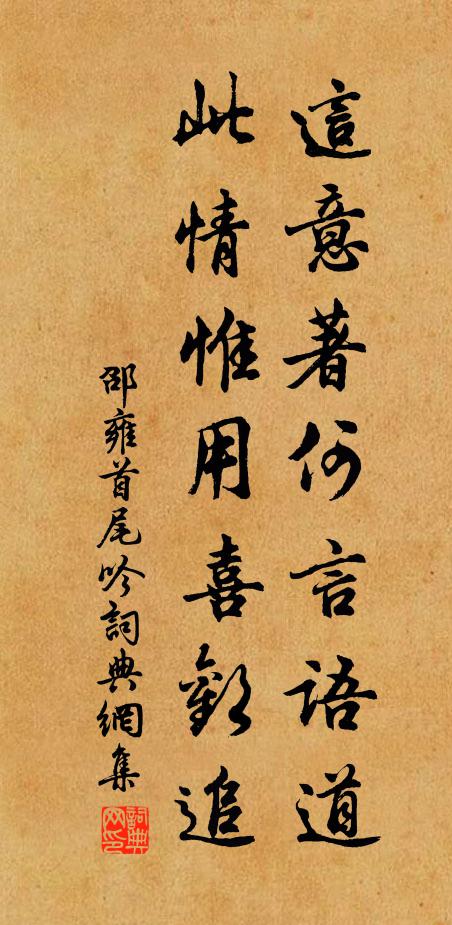 這意著何言語道
此情惟用喜歡追
邵雍首尾吟詞典網集
詞典網印